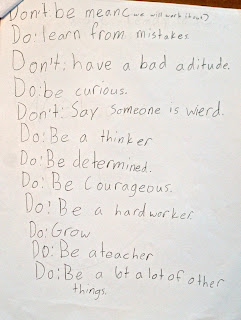 Don't be mean (we will work it out?)
Do: learn from mistakes
Don't: have a bad aditude.
Do: be curious.
Don't: Say someone is wierd.
Do: Be a thinker
Do: Be determined.
Do: Be Courageous.
Do: Be a hardworker.
Do: Grow
Do: Be a teacher
Do: Be a lot a lot of other
things.